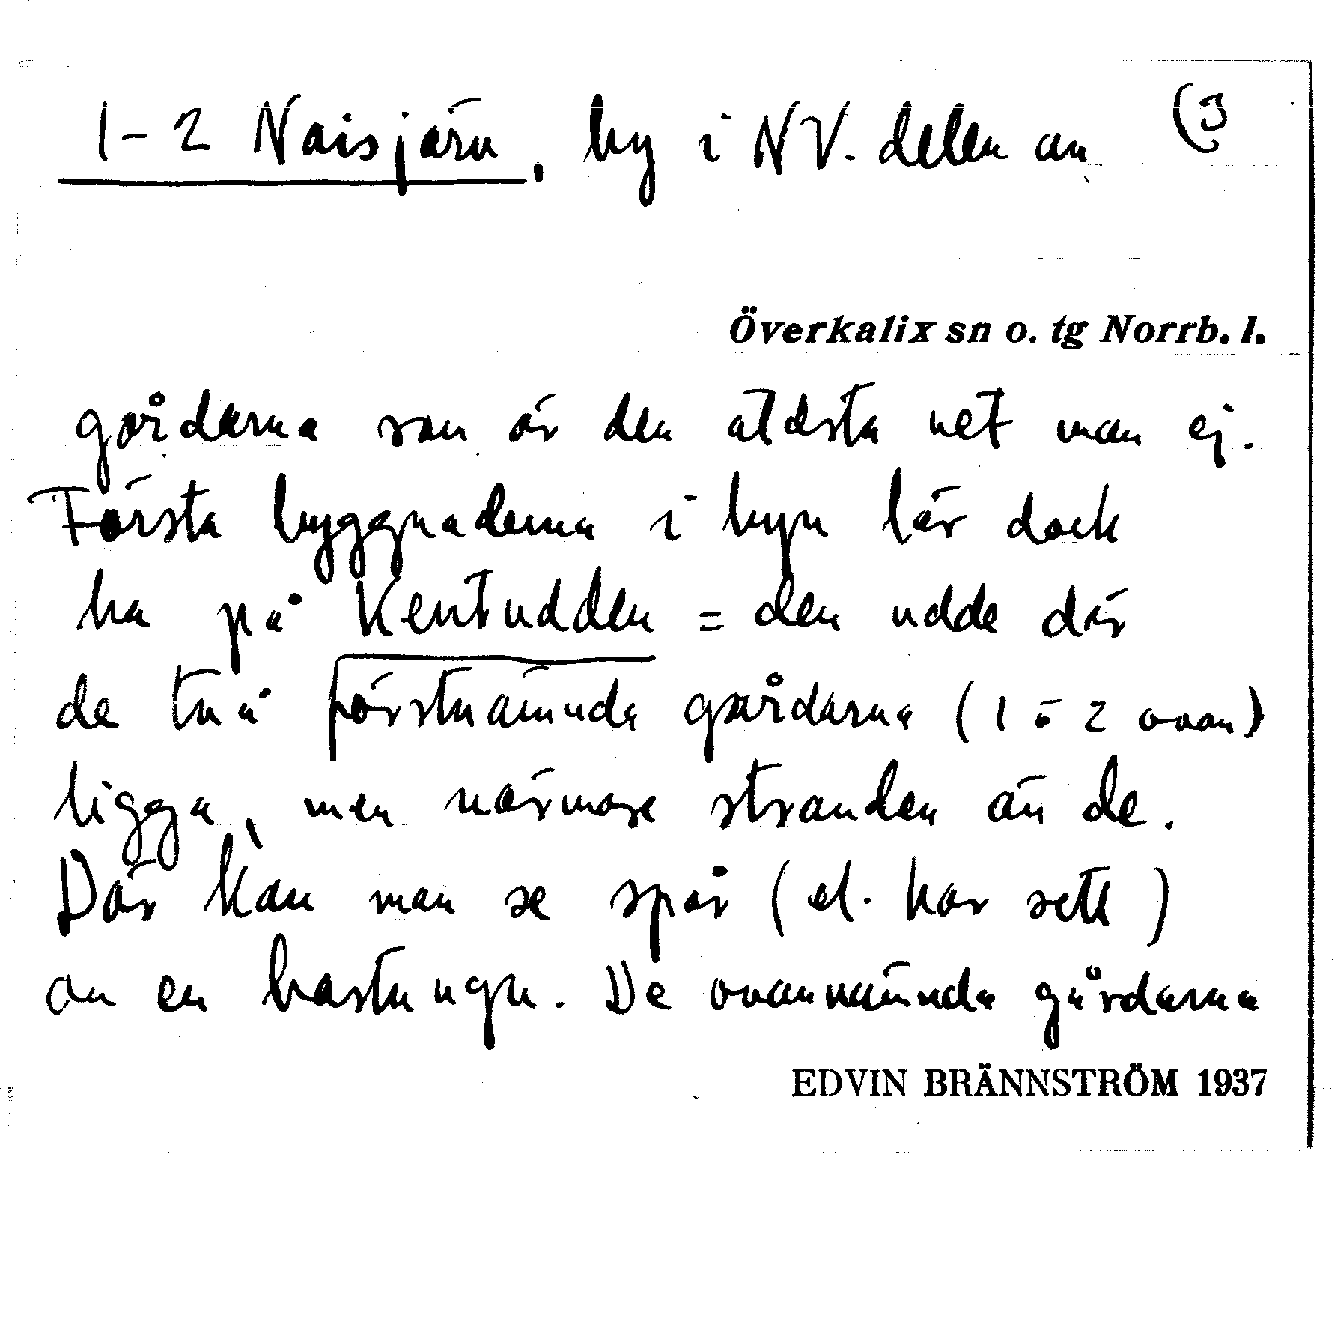 1-2 Naisjärv, by i NV. delen av (3
Överkalix sn o. tg Norrb. l.
gårdarna som är den äldsta vet man ej.
Första byggnaderna i byn lär dock
ha på Kentudden = den udde där
de två förstnämnda gårdarna (1 o 2 ovan)
ligga, men närmare stranden än de.
Där kan man se spår (el. har sett)
av en bastu ugn. De ovannämnda gårdarna
EDVIN BRÄNNSTRÖM 1937